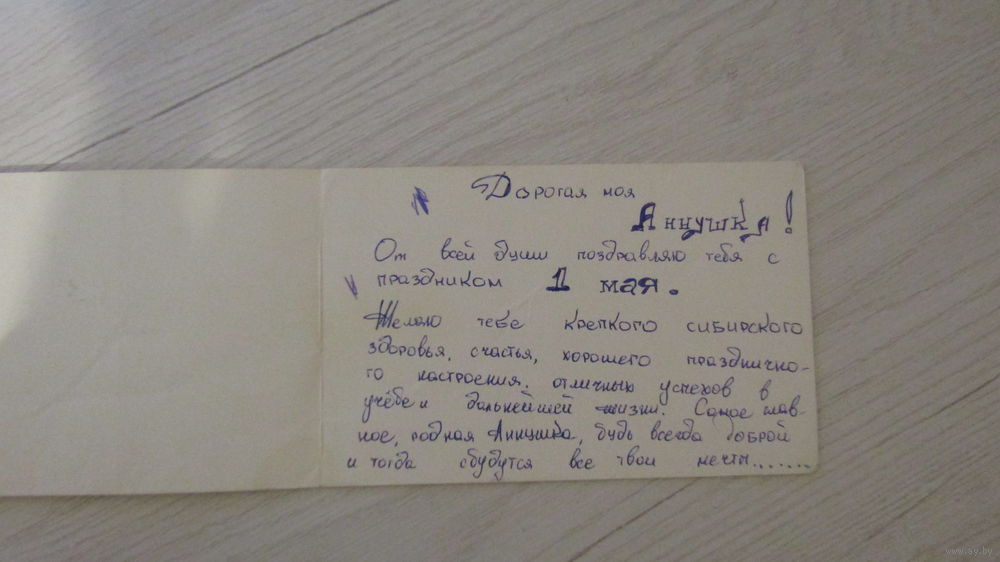 Дорогая моя
Аннушка!
От всей души поздравляю тебя с
праздником 1 мая.
Желаю тебе крепкого сибирского
здоровья, счастья, хорошего празднично-
го настроения, отличных успехов в
учёбе и дальнейшей жизни. Самое глав-
ное, родная Аннушка, будь всегда доброй
и тогда сбудутся все твои мечты.......
www.ay.by